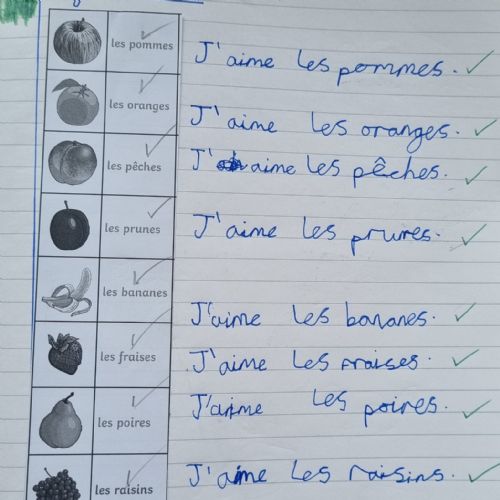 les pommes J'aime les pommes.
les oranges J'aime les oranges.
les pêches J' aime les pêches.
les prunes J'aime les prunes.
les bananes J'aime les bananes.
les fraises J'aime les fraises.
les poires J'aime les poires.
les raisins J'aime les raisins.